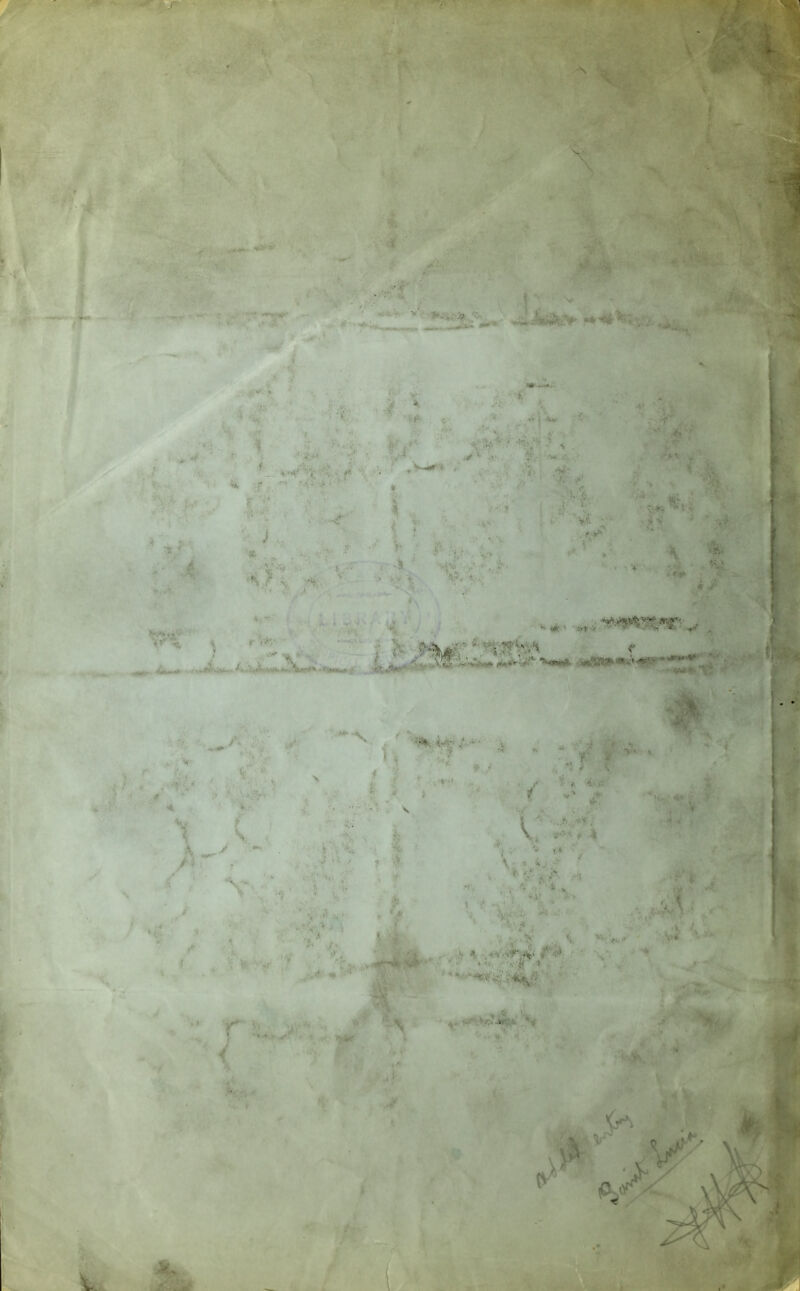 LIBRARY
added entry
Saint Lucia